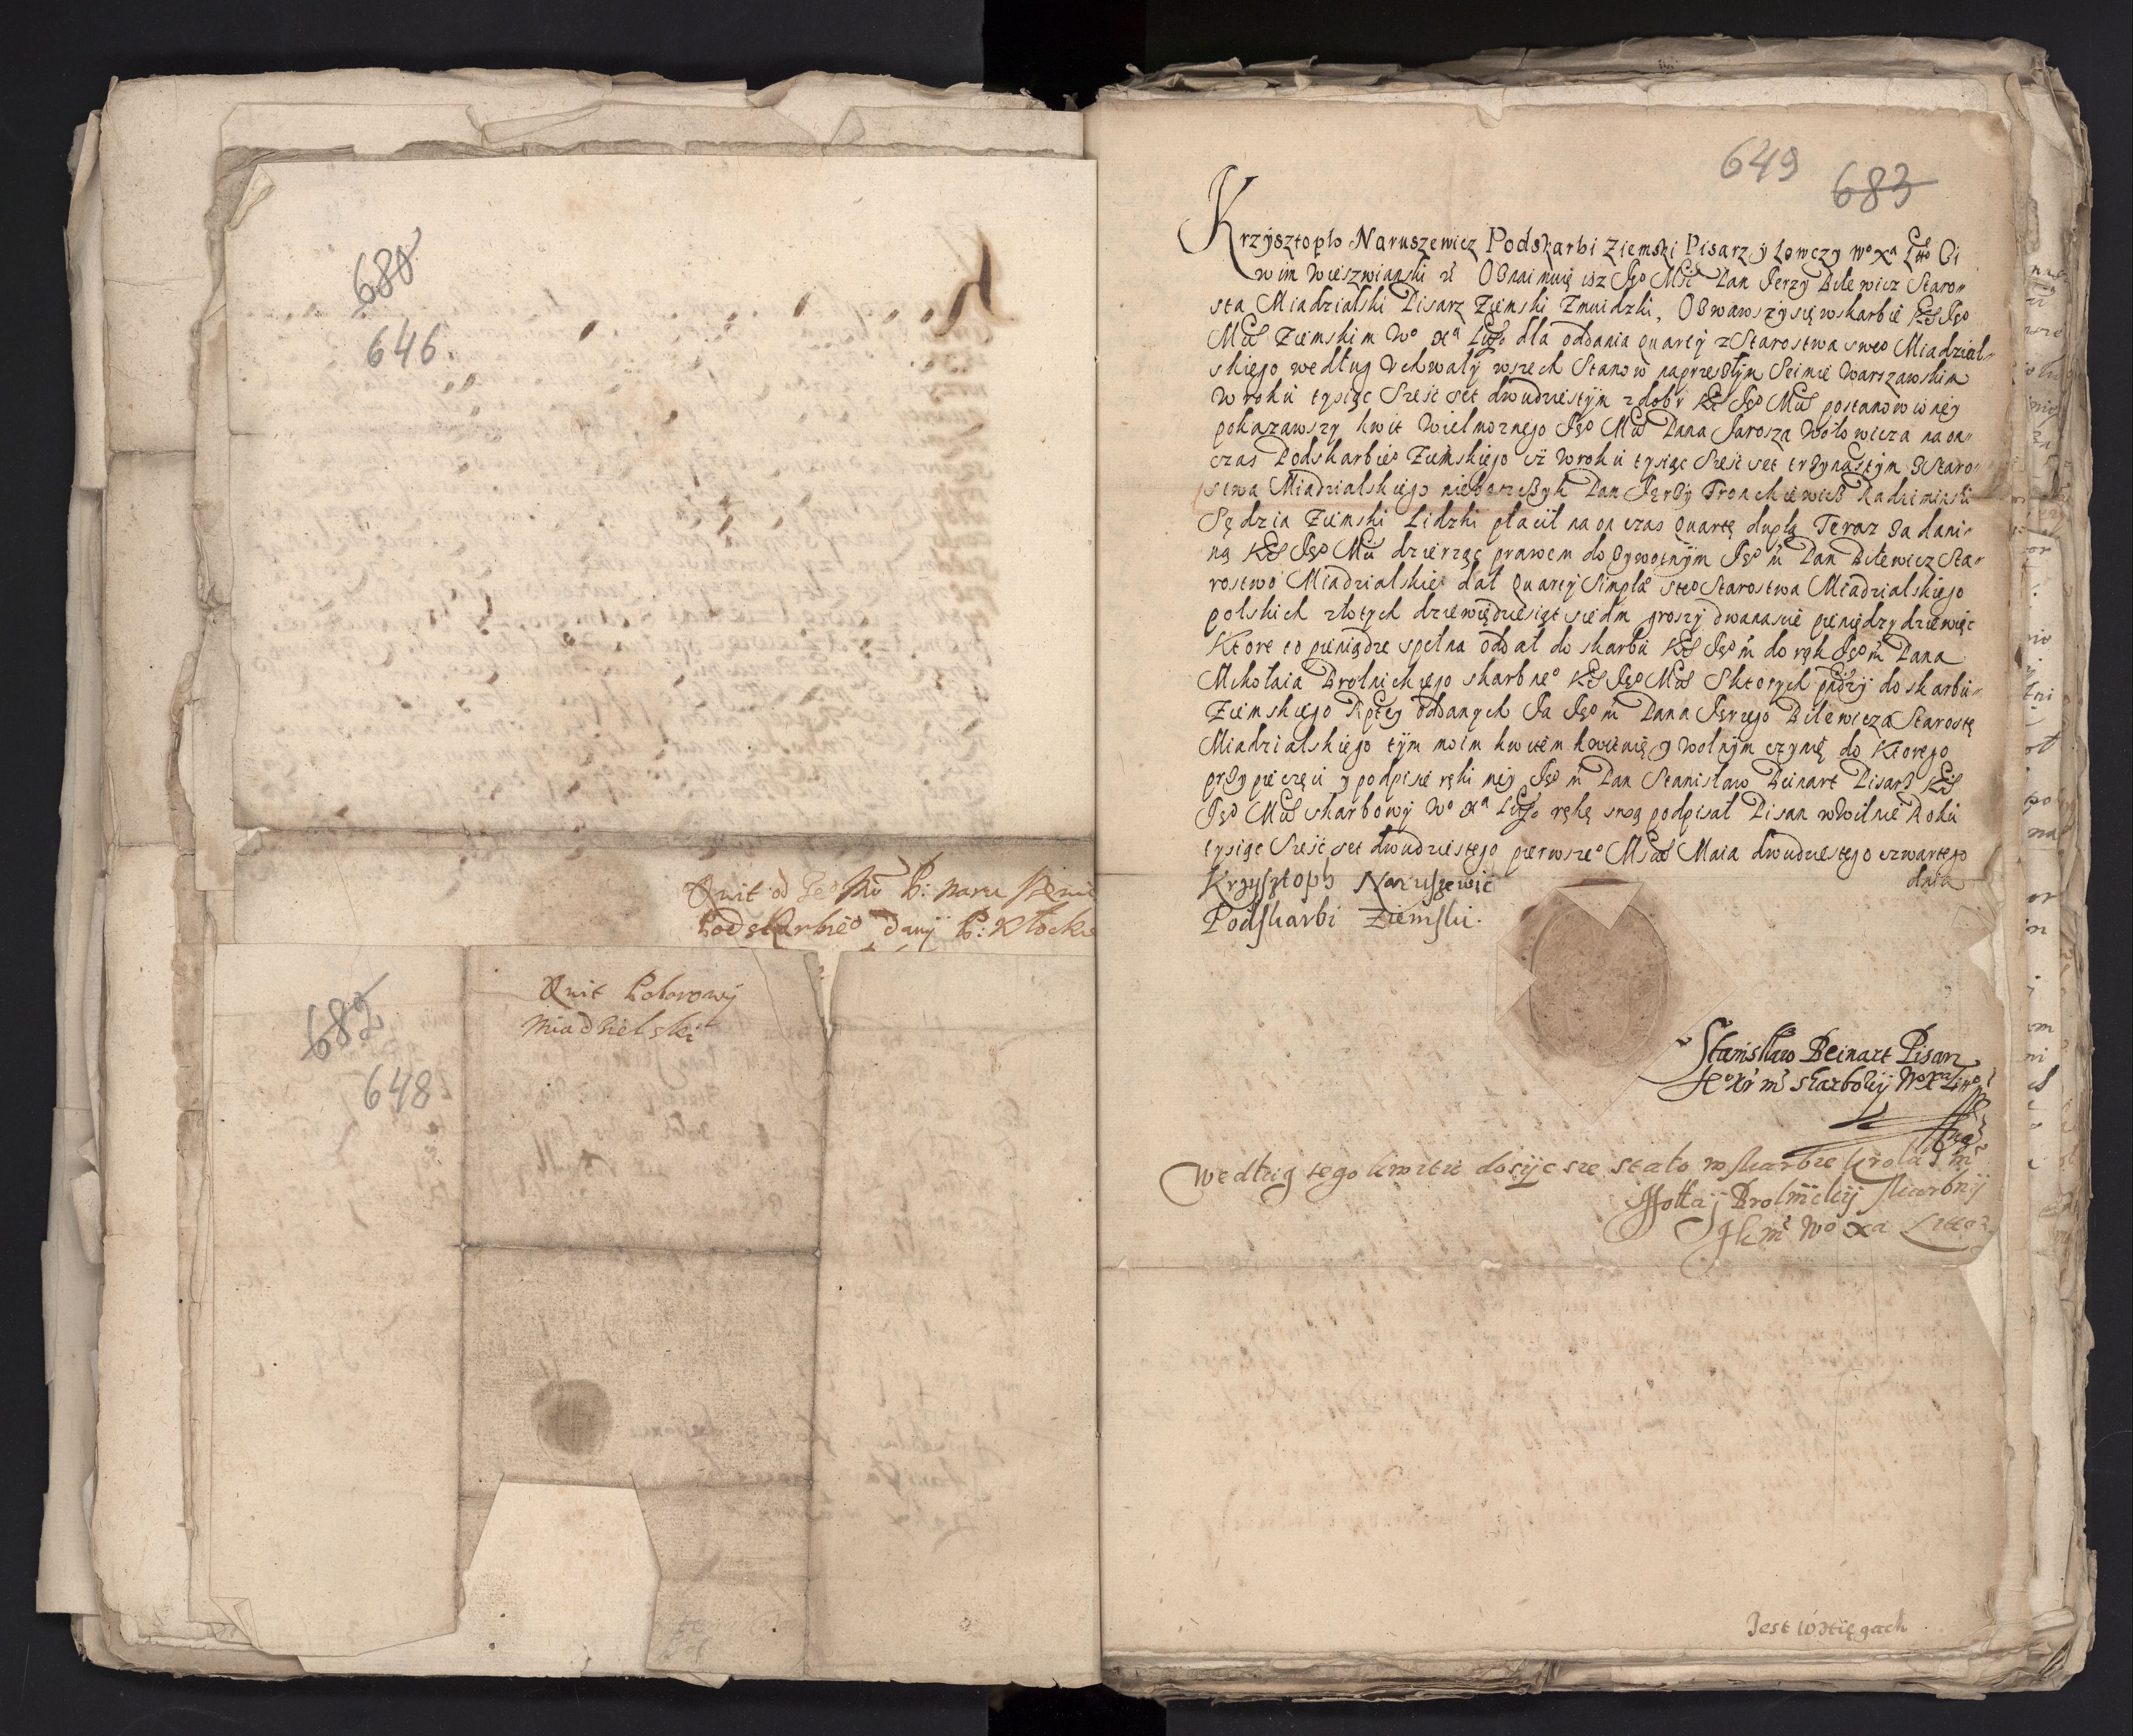 680
646
Quit od Jeo Mci P: Naru szewic
Podskarbieo dany P: Kłocko
Quit Poborowy
Miadzielski
682
648
649 683
Krzysztoph Naruszewicz Podskarbi Ziemski Pisarz y Łowczy Wo Xa Litto Ci
win Wieszwianski Oznaimuię isz Jego Mść Pan Jerzy Bilewicz Staro-
sta Miadzialski Pisarz Ziemski Zmuidzki, Ozwawszy się w skarbie Jego
Mci Ziemskim Wo Xa dla oddania quarty z Starostwa sweo Miadzial-
skiego według Uchwały wszech Stanow na przeszłym Seimie Warszawskim
W roku tysiąc Sześć set dwudziestym z dobr Jego Mci postanowioney
pokazawszy kwit Wielmoznego Jego Mci Pana Jarosza Wołowicza na on-
czas Podskarbieo Ziemskiego isz w roku tysiąc sześć set trzynastym z Staro-
stwa Miadzialskiego nieboszczyk Pan Jerzy Fronckiewicz Radziminski
Sędzia Ziemski Lidzki płacił na on czas quartę duplą Teraz za dani-
ną Jego Mci dzierząc prawem dożywotnym Jego m Pan Bilewicz Sta-
rostwo Miadzialskie dał quarty Simplae z teo Starostwa Miadzialskiego
polskich złotych dziewiędziesiąt siedm groszy dwanascie pieniędzy dziewięć
Ktore to pieniądze spełna oddał do skarbu Jego m do rąk Jego m Pana
Mikołaia Brolnickiego skarbneo Jego Mci Z ktorych do skarbu
Ziemskiego oddanych Ja Jego m Pana Jerzego Bilewicza Starostę
Miadzialskiego tym moim kwitem kwituię y wolnym czynię do Ktorego
przy pieczęci y podpisie ręki mey Jego m Pan Stanisław Beinart Pisarz
Jego Mci skarbowy Wo Xa rękę swą podpisał Pisan w Wilnie Roku
tysiąc Sześć set dwudziestego pierwszeo Msca Maia dwudziestego czwartego
dnia
Krzysztoph Naruszewic
Podskarbi Ziemski.
Stanisław Beinart Pisarz
skarbowy Wo Xa Litto
Według tego kwitu dosyc sie stało w skarbie krola J mci
Brolnicky skarbny
J k mci Wo Xa Litto
Jest w xięgach